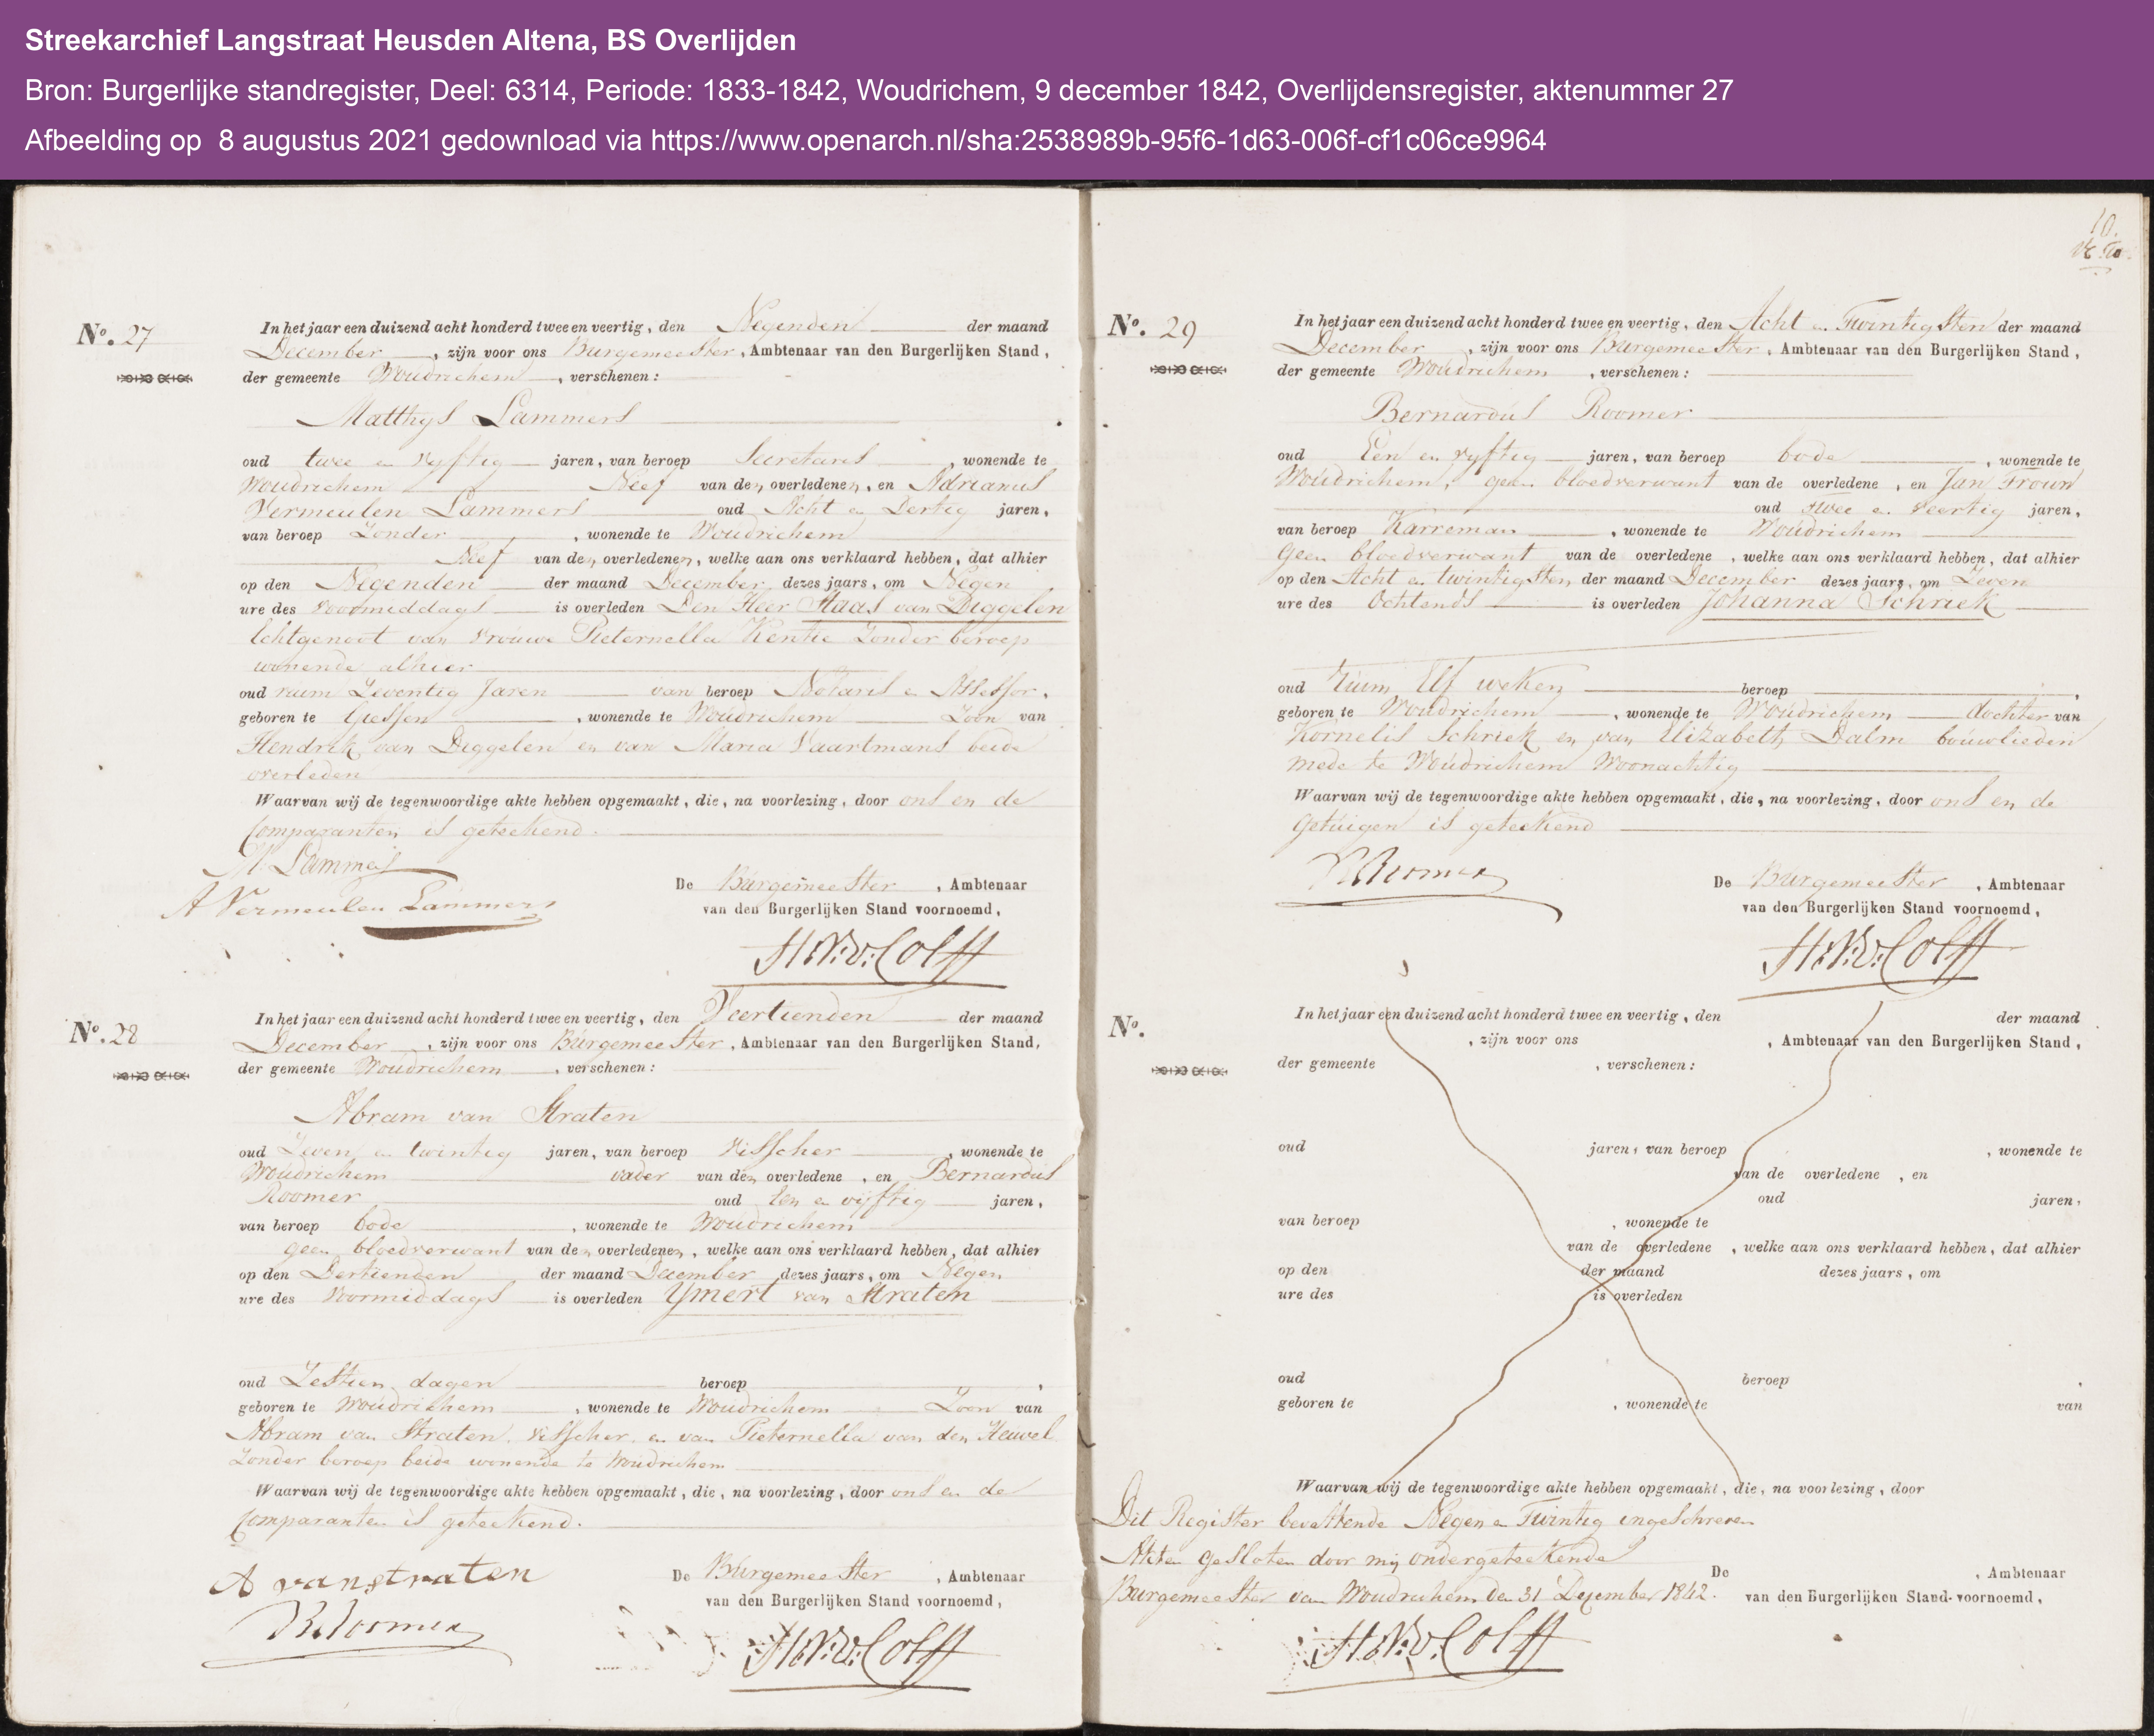 Streekarchief Langstraat Heusden Altena, BS Overlijden
Bron: Burgerlijke standregister, Deel: 6314, Periode: 1833-1842, Woudrichem, 9 december 1842, Overlijdensregister, aktenummer 27
Afbeelding op 8 augustus 2021 gedownload via https://www.openarch.nl/sha:2538989b-95f6-1d63-006f-cf1c06ce9964
No. 27
In het jaar een duizend acht honderd twee en veertig, den Negenden der maand
December, zijn voor ons Burgemeester, Ambtenaar van den Burgerlijken Stand,
der gemeente Woudrichem, verschenen:
Matthijs Lammers
oud twee en vyftig jaren, van beroep Secretaris, wonende te
Woudrichem Neef van den overledenen, en Adrianus
Vermeulen Lammers oud Acht en Dertig jaren,
van beroep Zonder, wonende te Woudrichem
Neef van den overledenen, welke aan ons verklaard hebben, dat alhier
op den Negenden der maand December dezes jaars, om Negen
ure des voormiddags is overleden Den Heer Klaas van Diggelen
Echtgenoot van vrouwe Pieternella Kentie Zonder beroep
wonende alhier
oud ruim Zeventig Jaren van beroep Notaris en Assessor,
geboren te Giessen, wonende te Woudrichem Zoon van
Hendrik van Diggelen en van Maria Vaartmans beide
overleden
Waarvan wij de tegenwoordige akte hebben opgemaakt, die, na voorlezing, door ons en de
Comparanten is geteekend.
M Lammers
A Vermeulen Lammers
De Burgemeester, Ambtenaar
van den Burgerlijken Stand voornoemd,
No. 28
In het jaar een duizend acht honderd twee en veertig, den Veertienden der maand
December, zijn voor ons Burgemeester, Ambtenaar van den Burgerlijken Stand,
der gemeente Woudrichem, verschenen:
Abram van Straten
oud Zeven en twintig jaren, van beroep visscher, wonende te
Woudrichem vader van den overledene, en Bernardus
Roomer oud Een en vijftig jaren,
van beroep bode, wonende te Woudrichem
geen bloedverwant van den overledenen, welke aan ons verklaard hebben, dat alhier
op den Dertienden der maand December dezes jaars, om Negen
ure des voormiddags is overleden Ymert van Straten
oud Zestien dagen beroep,
geboren te Woudrichem, wonende te Woudrichem Zoon van
Abram van Straten visscher en van Pieternella van den Heuvel
Zonder beroep beide wonende te Woudrichem
Waarvan wij de tegenwoordige akte hebben opgemaakt, die, na voorlezing, door ons en de
Comparanten is geteekend.
A vanstraten
B Roomer
De Burgemeester, Ambtenaar
van den Burgerlijken Stand voornoemd,
10.
No. 29
In het jaar een duizend acht honderd twee en veertig, den Acht en Twintigsten der maand
December, zijn voor ons Burgemeester, Ambtenaar van den Burgerlijken Stand,
der gemeente Woudrichem, verschenen:
Bernardus Roomer
oud Een en vyftig jaren, van beroep bode, wonende te
Woudrichem, geen bloedverwant van de overledene, en Jan Troun
oud Twee en Veertig jaren,
van beroep Karreman, wonende te Woudrichem
geen bloedverwant van de overledene, welke aan ons verklaard hebben, dat alhier
op den Acht en twintigsten der maand December dezes jaars, om Zeven
ure des Ochtends is overleden Johanna Schriek
oud Ruim Elf weken beroep,
geboren te Woudrichem, wonende te Woudrichem dochter van
Kornelis Schriek en van Elizabeth Dalm bouwlieden
mede te Woudrichem Woonachtig
Waarvan wij de tegenwoordige akte hebben opgemaakt, die, na voorlezing, door ons en de
Getuigen is geteekend
B Roomer
De Burgemeester, Ambtenaar
van den Burgerlijken Stand voornoemd,
No.
In het jaar een duizend acht honderd twee en veertig, den der maand
, zijn voor ons, Ambtenaar van den Burgerlijken Stand,
der gemeente, verschenen:
oud jaren, van beroep, wonende te
van de overledene, en
oud jaren,
van beroep, wonende te
van de overledene, welke aan ons verklaard hebben, dat alhier
op den der maand dezes jaars, om
ure des is overleden
oud beroep,
geboren te, wonende te van
Waarvan wij de tegenwoordige akte hebben opgemaakt, die, na voorlezing, door
Dit Register bevattende Negen en Twintig ingeschreven
Akten gesloten door mij ondergeteekende
Burgemeester van Woudrichem den 31 December 1842.
De, Ambtenaar
van den Burgerlijken Stand voornoemd,